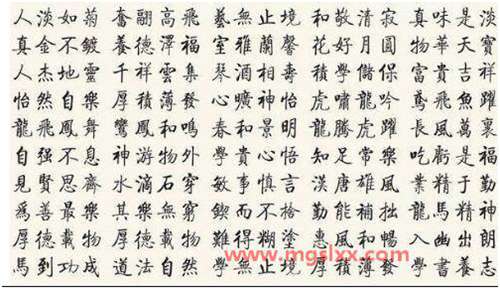 人淡如菊 奮翮高飛 藝無止境 和敬清寂 真味是淡
真金不鍍 養德澤福 室雅蘭馨 花好月圓 物華天寶
人杰地靈 千祥雲集 琴酒相壽 積學儲保 富貴吉祥
怡然自樂 厚積薄發 心曠神怡 虎嘯龍吟 鳶飛魚躍
龍飛鳳舞 鸞鳳和鳴 春和景明 龍騰虎躍 長風萬裏
自強不息 神游物外 學貴心悟 知足常樂 吃虧是福
見賢思齊 水滴石穿 敏事慎言 漢唐雄風 業精于勤
為善最樂 其樂無窮 鍥而不捨 勤能補拙 龍馬精神
厚德載物 厚德載物 難得糊塗 惠風和暢 入幽出朗
馬到功成 道法自然 學無止境 厚積薄發 學書養志
www.mgslxx.com